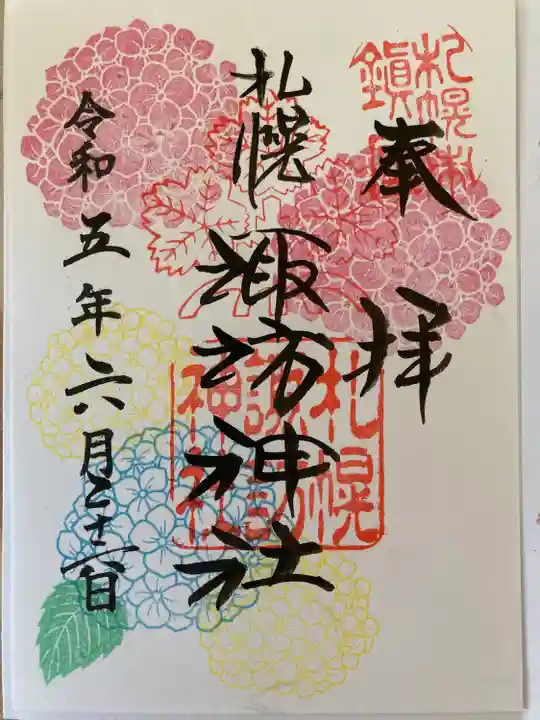 奉拝
札幌諏訪神社
令和五年六月二十六日
札幌
諏訪
神社